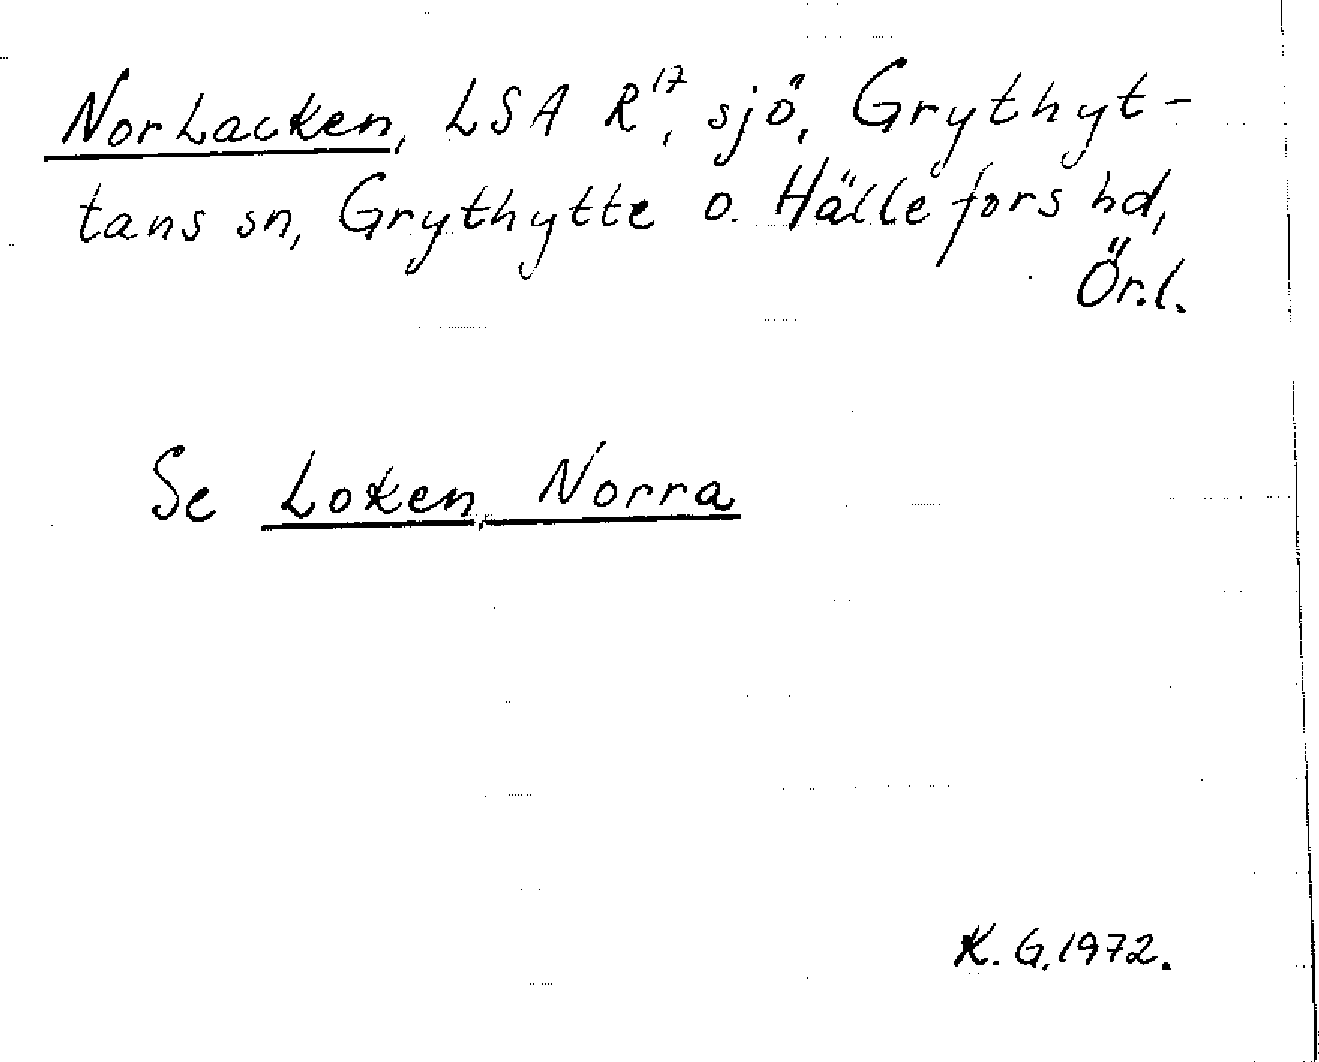 NorLacken, LSA R¹⁷, sjö, Grythyt-
tans sn, Grythytte o. Hällefors hd,
Ör.l.
Se Loken, Norra
K. G. 1972.